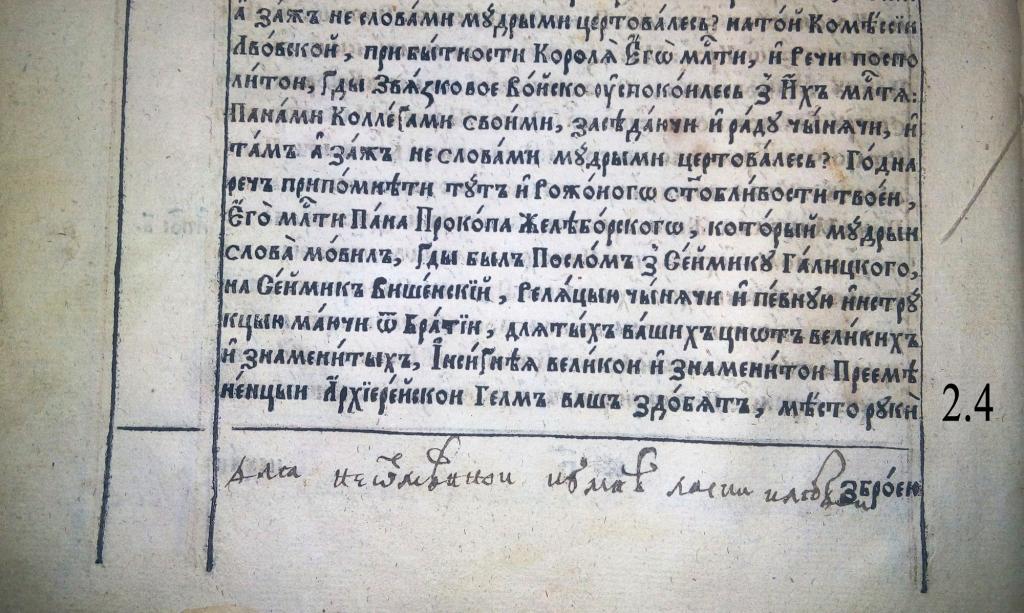 а҆ за́жъ не слова́ми мꙋ́дрыми цертова́лесь? на то́й Комѣ́ссїи
Лво́вской, при бы́тности Королѧ̀ Є҆гѡ̀ мл҃ти, и҆ Речи поспо
ли́тои, ґды Звѧ́зковое Во́йско оу҆споко́илесь з̾ И҆́хъ мл҃тѧ:
Пана́ми Колле́ґами свои́ми, засѣда́ючи и҆ ра́дꙋ чы́нѧчи, и҆
та́мъ а҆ за́жъ не слова́ми мꙋ́дрыми цертова́лесь? Го́дна
речъ припо́мнѣти тꙋ́тъ и҆ Рожо́ногѡ стобли́вости твое́и,
Є҆гѡ̀ мл҃ти Па́на Проко́па Желѣбо́рскогѡ, кото́рый мꙋ́дрыи
слова̀ мо́вилъ, ґды былъ Посло́мъ з̾ Се́ймикꙋ Га́лицкого,
на Се́ймикъ Више́нскїй, Релѧ́цыю чы́нѧчи и҆ пе́внꙋю и҆нстрꙋ́
кцыю ма́ючи ѿ Бра́тїи, длѧ ты́хъ ва́шихъ цнѡтъ вели́кихъ
и҆ знамени́тыхъ, І҆нси́ґнѣѧ вели́кои и҆ знамени́тои Преемѣ
не́нцыи А҆рхїере́йскои Гелмъ вашъ здо́бѧтъ, мѣ́сто рꙋки̾
2.4
збро́ею